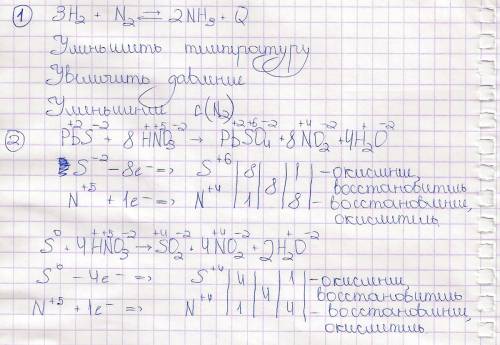 ① 3H₂ + N₂ ⇄ 2NH₃ + Q
Уменьшить температуру
Увеличить давление
Уменьшении c(N₂)
② Pb⁺²S⁻² + 8H⁺N⁺⁵O₃⁻² → Pb⁺²S⁺⁶O₄⁻² + 8N⁺⁴O₂⁻² + 4H₂⁺O⁻²
S⁻² - 8e⁻ => S⁺⁶ | 8 | 8 | 1 | - окислении,
восстановитель
N⁺⁵ + 1e⁻ => N⁺⁴ | 1 | | 8 | - восстановлении,
окислитель
S⁰ + 4H⁺N⁺⁵O₃⁻² → S⁺⁴O₂⁻² + 4N⁺⁴O₂⁻² + 2H₂⁺O⁻²
S⁰ - 4e⁻ => S⁺⁴ | 4 | 4 | 1 | - окислении,
восстановитель
N⁺⁵ + 1e⁻ => N⁺⁴ | 1 | | 4 | - восстановлении,
окислитель